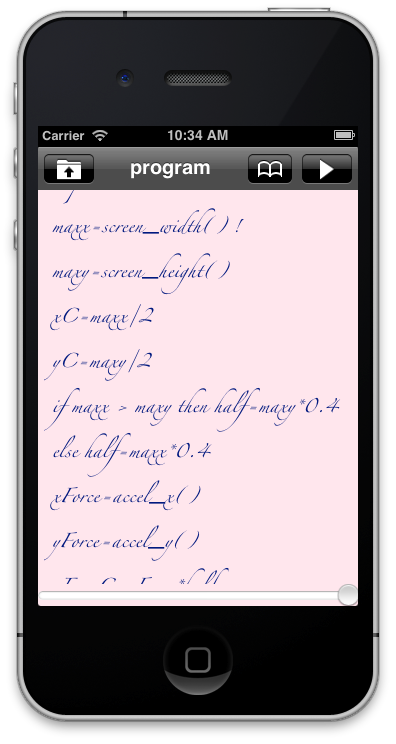 Carrier 10:34 AM
program
maxx=screen_width( ) !
maxy=screen_height( )
xC=maxx/2
yC=maxy/2
if maxx > maxy then half=maxy*0.4
else half=maxx*0.4
xForce=accel_x( )
yForce=accel_y( )